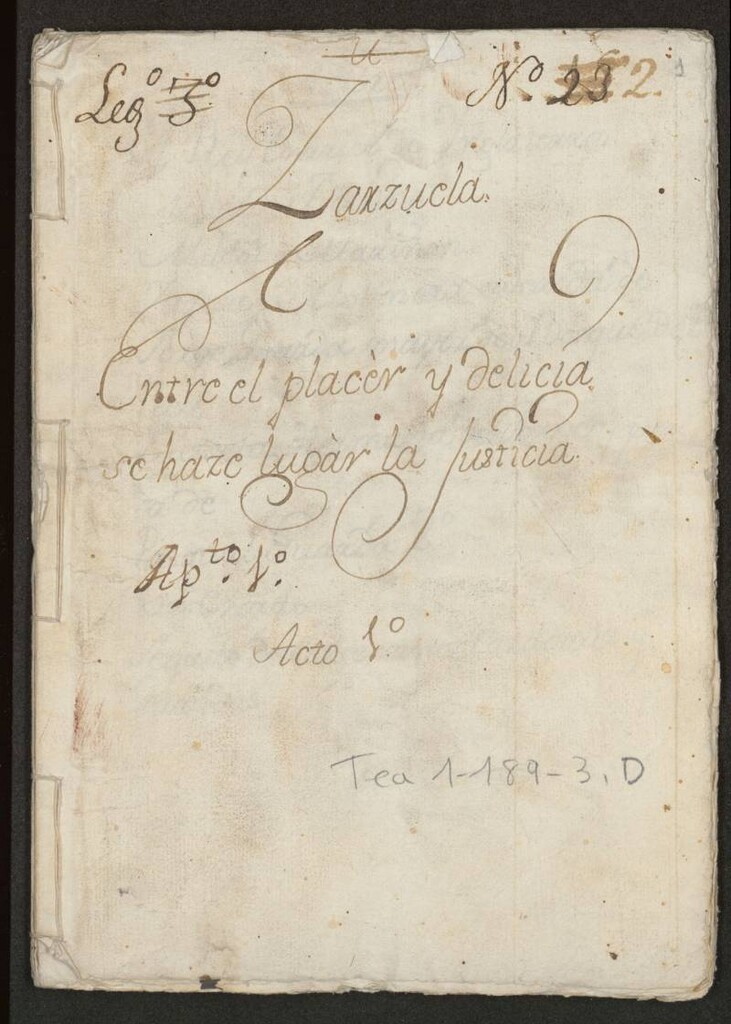 Legº 3º
Nº. 23 2.
Zarzuela.
Entre el placèr y delicia
se haze lugàr la Justicia.
Apto. 1º.
Acto 1º
Tea 1-189-3, D